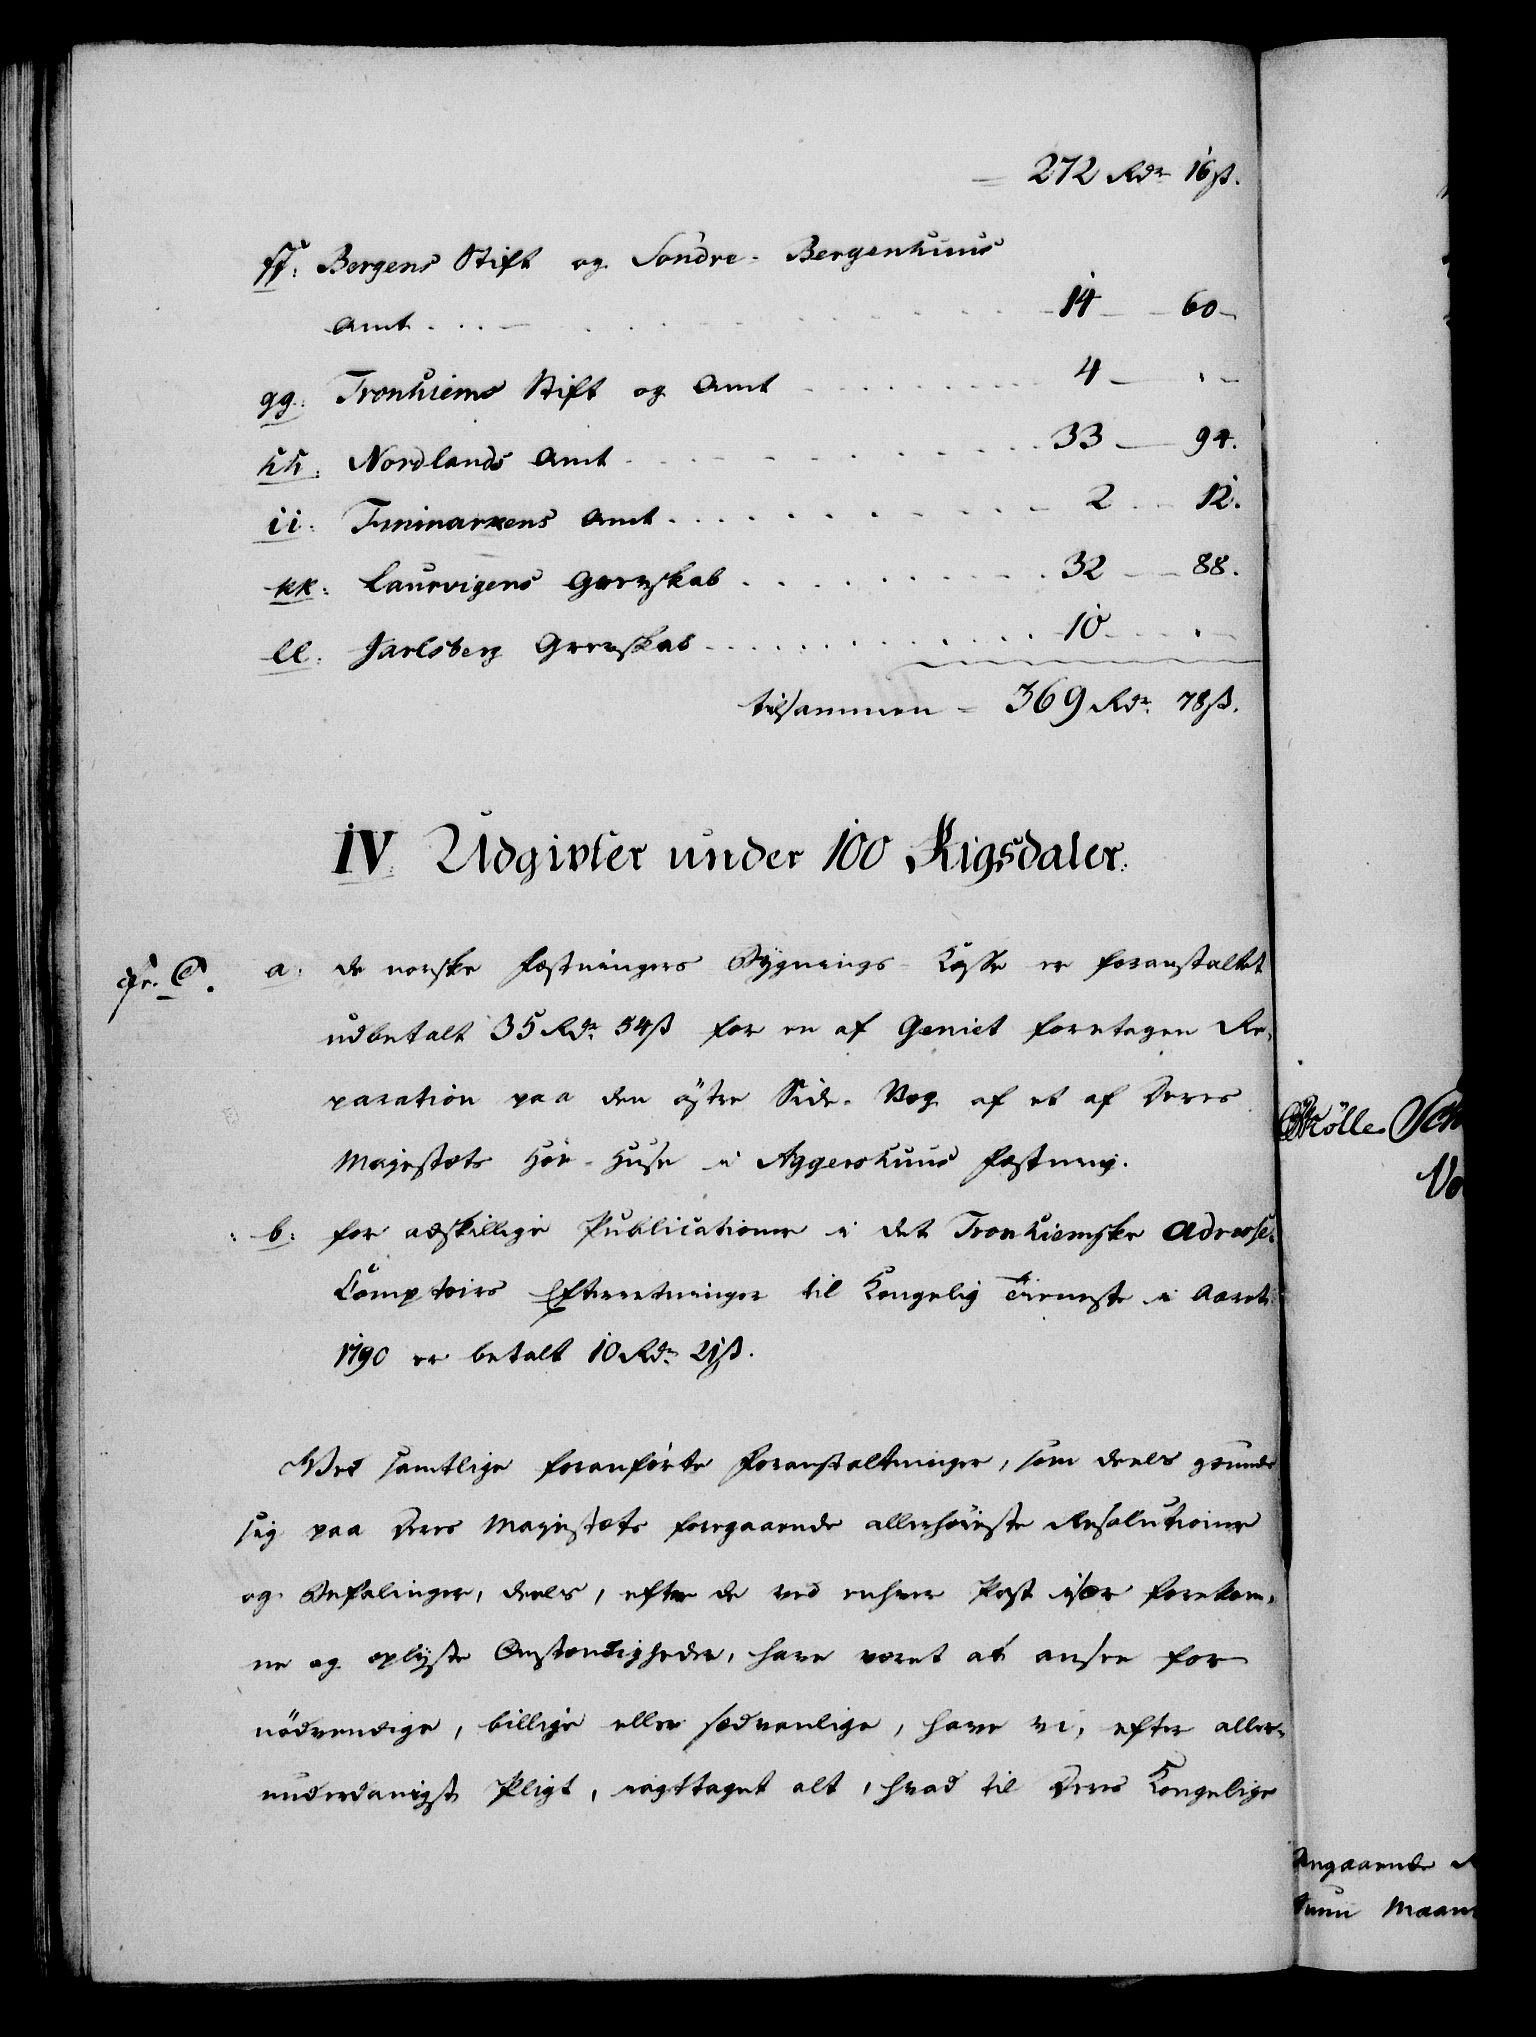 = 272 Rdr 16 ß.
ff: Bergens Stift og Söndre-Bergenhuus
Amt . . . 14 — 60 —
gg: Tronhiems Stift og Amt . . . 4 — „ —
hh: Nordlands Amt . . . 33 — 94.
ii: Finmarkens Amt . . . 2 — 12.
kk: Laurvigens Grevskab . . . 32 — 88.
ll: Jarlsberg Grevskab . . . 10 — „ —
tilsammen = 369 Rdr 78 ß.
IV. Udgivter under 100 Rigsdaler.
a: de norske Fæstningers Bygnings-Kasse er foranstaltet
udbetalt 35 Rdr 54 ß for en af Geniet foretagen Re-
paration paa den östre Side-Væg af et af Deres
Majestæts Höe-Huse i Aggershuus Fæstning.
b: for adskillige Publicationer i det Tronhiemske Adresse-
Comptoirs Efterretninger til Kongelig Tieneste i Aaret
1790 er betalt 10 Rdr 21 ß.
Ved samtlige foranförte Foranstaltninger, som deels grunde
sig paa Deres Majestæts foregaaende allerhöieste Resolutioner
og Befalinger, deels, efter de ved enhver Post især forekom-
ne og oplyste Omstændigheder, have været at ansee for
nödvendige, billige eller sædvanlige, have vi, efter aller-
underdanigst Pligt, iagttaget alt, hvad til Deres Kongelige
Mölle
Angaaende